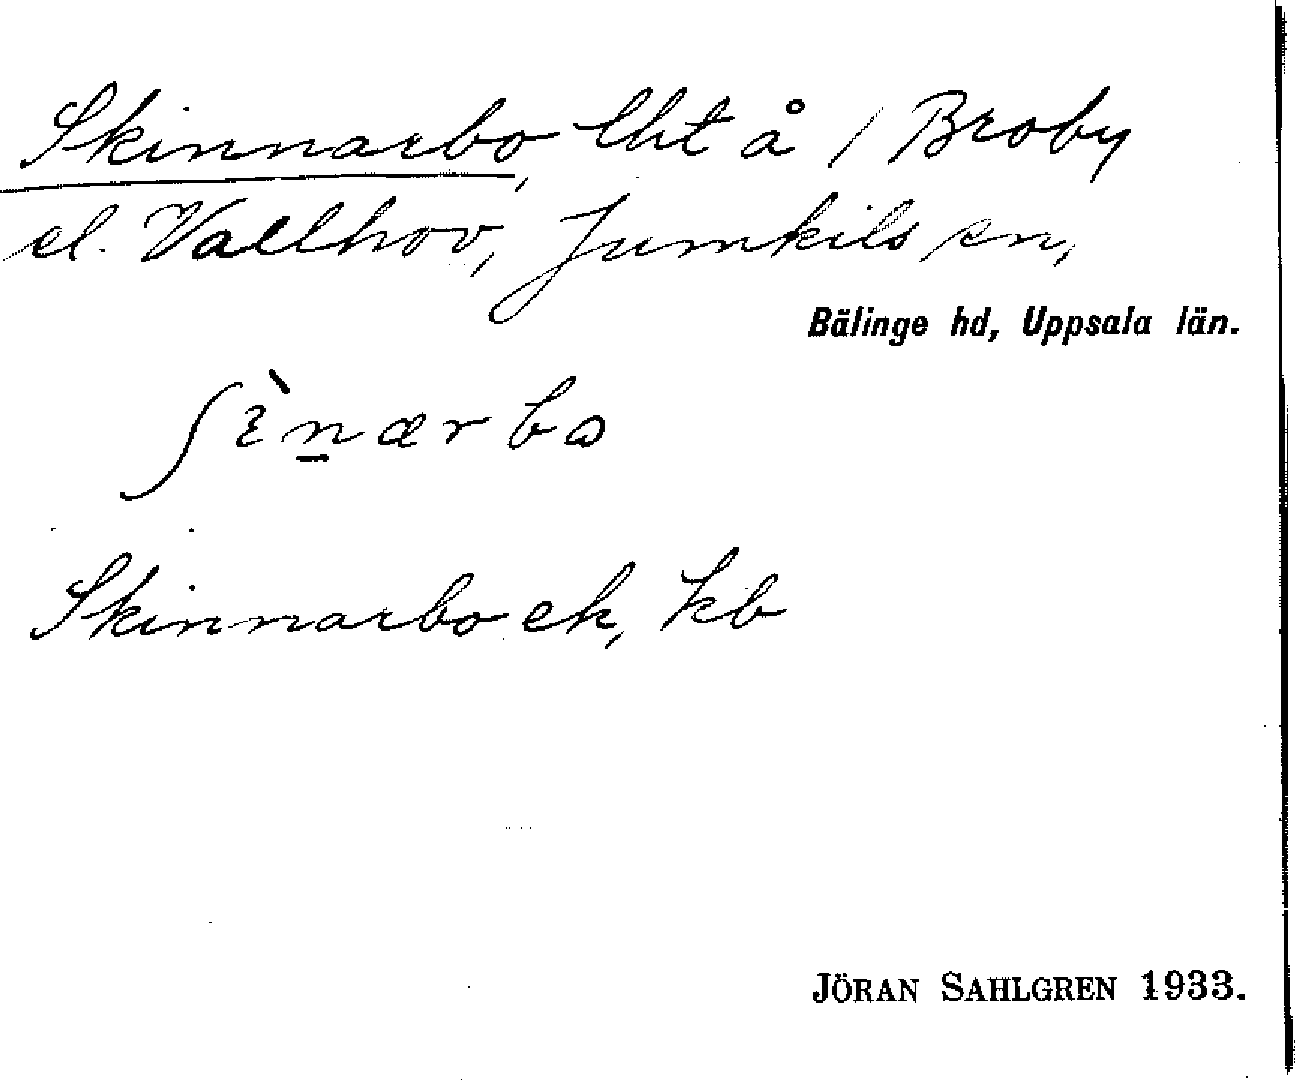 Skinnarbo, lht å / Broby
el. Vallhov, Jumkils sn,
Bälinge hd, Uppsala län.
ʃènærbo
Skinnarbo ek, kb
JÖRAN SAHLGREN 1933.